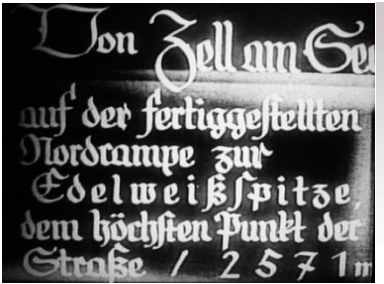 Von Zell am See
auf der fertiggestellten
Nordrampe zur
Edelweißspitze,
dem höchsten Punkt der
Straße / 2571m